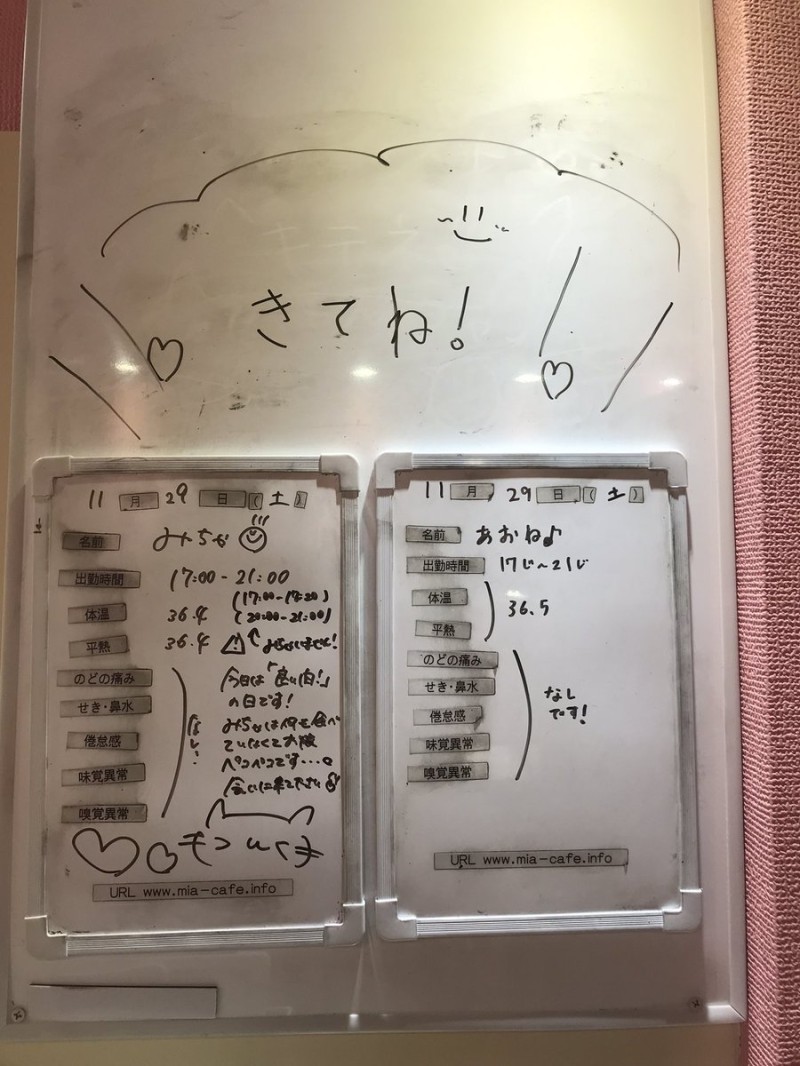 きてね!
11月29日(土)
名前 みちゃ
出勤時間 17:00-21:00
体温 36.4 (17:00-17:20)
(20:00-21:00)
平熱 36.4
のどの痛み
せき・鼻水
倦怠感
味覚異常
嗅覚異常
なし
今日は「良い肉!」
の日です!
みちゃは何も食べ
ていなくてお腹
ペコペコです…。
会いに来てください
URL www.mia-cafe.info
11月29日(土)
名前 あおね♪
出勤時間 17じ~21じ
体温
平熱
36.5
のどの痛み
せき・鼻水
倦怠感
味覚異常
嗅覚異常
なし
です!
URL www.mia-cafe.info